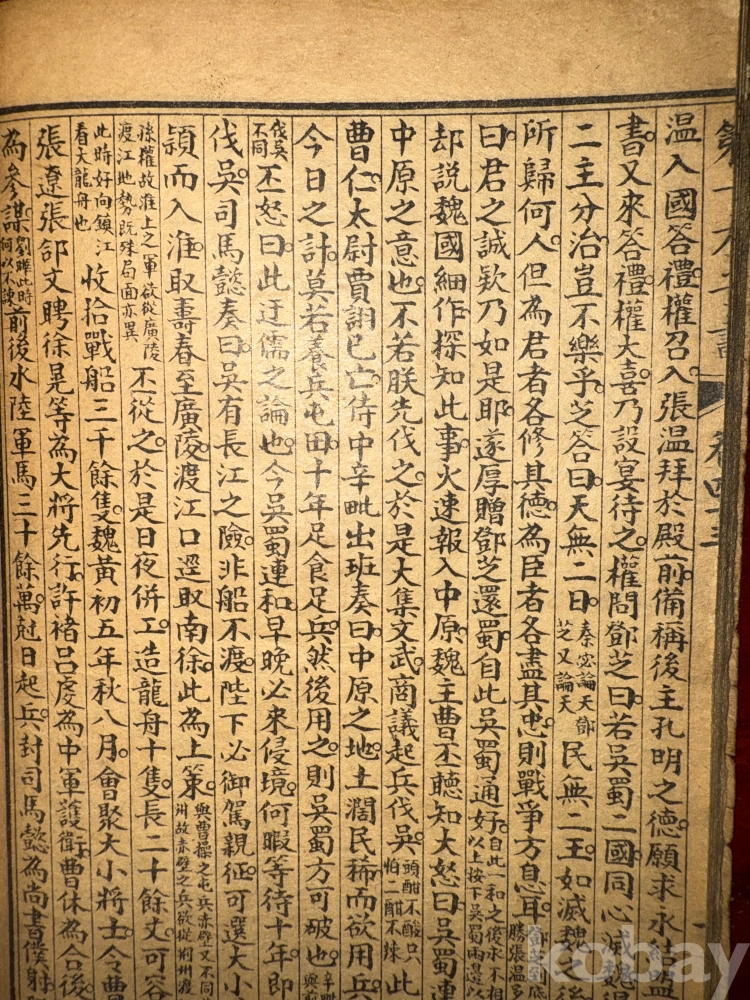 第一才子書 卷四十三
温入國答禮權召入張温拜於殿前備稱後主孔明之德願求永結盟
書又來答禮權大喜乃設宴待之權問鄧芝曰若吳蜀二國同心滅魏
二主分治豈不樂乎芝答曰天無二日秦宓論天鄧芝又論天民無二王如滅魏之後
所歸何人但為君者各修其德為臣者各盡其忠則戰爭方息耳鄧芝到底勝張温多
曰君之誠欵乃如是耶遂厚贈鄧芝還蜀自此吳蜀通好自此一和之後永不相以上按下吳蜀兩邊以
却説魏國細作探知此事火速報入中原魏主曹丕聽知大怒曰吳蜀連
中原之意也不若朕先伐之於是大集文武商議起兵伐吳頭酣不酸只怕二酣不辣此
曹仁太尉賈詡已亡侍中辛毗出班奏曰中原之地土濶民稀而欲用兵
今日之計莫若養兵屯田十年足食足兵然後用之則吳蜀方可破也辛毗與前
伐吳不同丕怒曰此迂儒之論也今吳蜀連和早晚必來侵境何暇等待十年即
伐吳司馬懿奏曰吳有長江之險非船不渡陛下必御駕親征可選大小
頴而入淮取壽春至廣陵渡江口逕取南徐此為上策與曹操之屯兵赤壁又不同州故赤壁之兵欲從荆州渡
孫權故淮上之軍欲從廣陵渡江地勢既殊局面亦異丕從之於是日夜併工造龍舟十隻長二十餘丈可容
此時好向鎮江看大龍舟也收拾戰船三千餘隻魏黃初五年秋八月會聚大小將士令曹
張遼張郃文聘徐晃等為大將先行許褚吕虔為中軍護衛曹休為合後
為參謀劉曄此時何以不諫前後水陸軍馬三十餘萬尅日起兵封司馬懿為尚書僕射
kobay